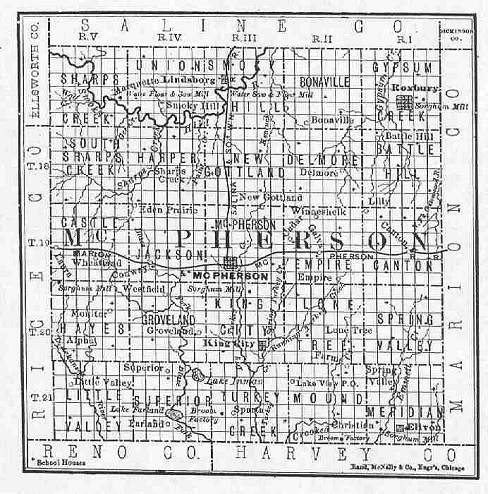 SALINE CO.
R.V R.IV R.III R.II R.I
DICKINSON CO.
ELLSWORTH CO.
UNION SMOKY GYPSUM
SHARPS Marquette Lindsborg BONAVILLE Roxbury
Water Flour & Saw Mill Water Saw & Flour Mill
Smoky Hill HILL Sorghum Mill
CREEK Bonaville CREEK
Battle Hill
SOUTH BATTLE
T.18 SHARPS HARPER NEW DELMORE
CREEK Sharps Creek GOTTLAND Delmore HILL
New Gottland Lilly
Eden Prairie Winneshelk
CASTLE MC.PHERSON Canton
MC PHERSON
T.19 MARION JACKSON PHERSON
Windfield EMPIRE CANTON
MCPHERSON Empire
Sorghum Mill Westfield Sorghum Mill
KING LONE
Monitor GROVELAND SPRING
T.20 HAYES Groveland CITY Lone Tree
Alpha King City REE VALLEY
Superior Spring Valley
Little Valley Lake Inman Lake View P.O.
T.21 LITTLE SUPERIOR TURKEY MOUND
Lake Farland Broom Factory Spartan MERIDIAN
VALLEY Farland CREEK Christian Elivon
Crooked Broom Factory Sorghum Mill
RICE CO
MARION CO
RENO CO. HARVEY CO
* School Houses
Rand, McNally & Co., Engr's, Chicago